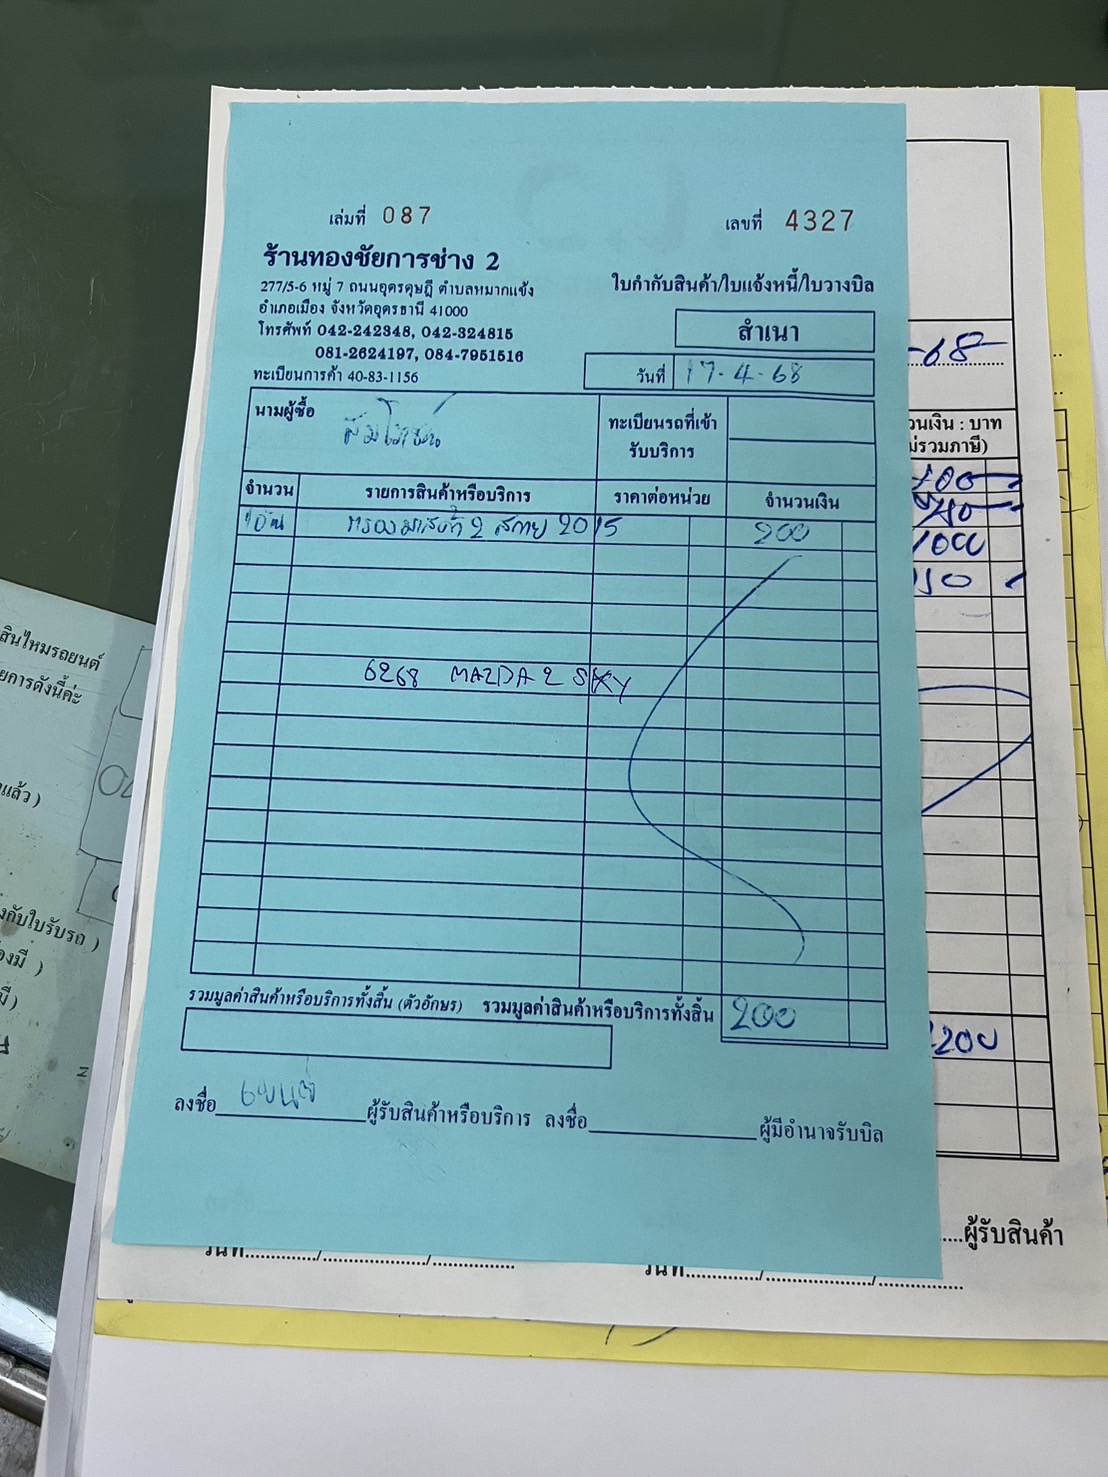 เล่มที่ 087
เลขที่ 4327
ร้านทองชัยการช่าง 2
277/5-6 หมู่ 7 ถนนอุดรดุษฎี ตำบลหมากแข้ง
อำเภอเมือง จังหวัดอุดรธานี 41000
โทรศัพท์ 042-242348, 042-324815
081-2624197, 084-7951516
ทะเบียนการค้า 40-83-1156
ใบกำกับสินค้า/ใบแจ้งหนี้/ใบวางบิล
สำเนา
วันที่ 17-4-68
นามผู้ซื้อ
ทะเบียนรถที่เข้า
รับบริการ
จำนวน รายการสินค้าหรือบริการ ราคาต่อหน่วย จำนวนเงิน
2 สกาย 2015 200
6268 MAZDA 2 SKY
รวมมูลค่าสินค้าหรือบริการทั้งสิ้น (ตัวอักษร) รวมมูลค่าสินค้าหรือบริการทั้งสิ้น 200
ลงชื่อ ผู้รับสินค้าหรือบริการ ลงชื่อ ผู้มีอำนาจรับบิล
-68
วนเงิน : บาท
ม่รวมภาษี)
ผู้รับสินค้า
สินไหมรถยนต์
ยการดังนี้ค่ะ
แล้ว )
งกับใบรับรถ )
องมี )
มี)